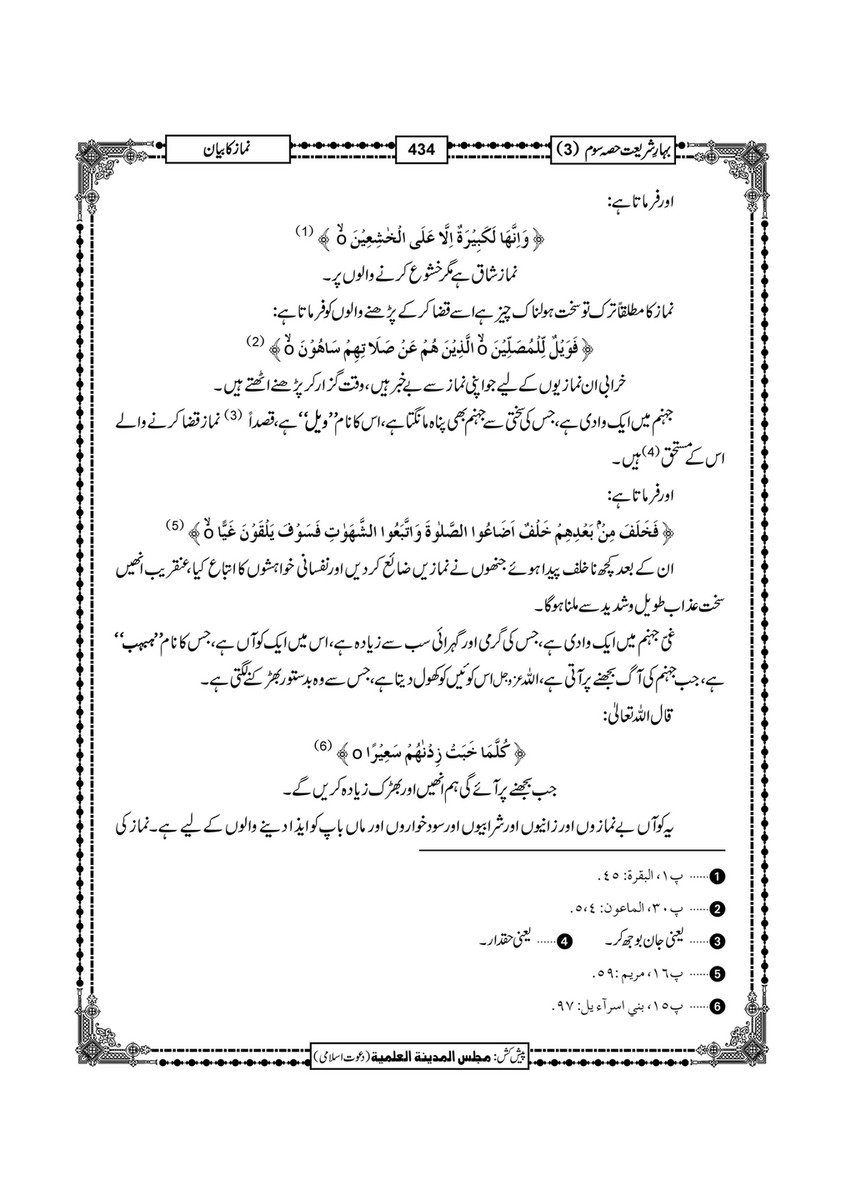 بہارِ شریعت حصہ سوم (3)
434
نماز کا بیان
اور فرماتا ہے:
﴿ وَاِنَّهَا لَكَبِيْرَةٌ اِلَّا عَلَى الْخٰشِعِيْنَ ۙ۝ ﴾ (1)
نماز شاق ہے مگر خشوع کرنے والوں پر۔
نماز کا مطلقاً ترک تو سخت ہولناک چیز ہے اسے قضا کر کے پڑھنے والوں کو فرماتا ہے:
﴿ فَوَيْلٌ لِّلْمُصَلِّيْنَ ۙ۝ الَّذِيْنَ هُمْ عَنْ صَلَاتِهِمْ سَاهُوْنَ ۙ۝ ﴾ (2)
خرابی ان نمازیوں کے لیے جو اپنی نماز سے بے خبر ہیں، وقت گزار کر پڑھنے اٹھتے ہیں۔
جہنم میں ایک وادی ہے، جس کی سختی سے جہنم بھی پناہ مانگتا ہے، اس کا نام ’’ویل‘‘ ہے، قصداً (3) نماز قضا کرنے والے
اس کے مستحق (4) ہیں۔
اور فرماتا ہے:
﴿ فَخَلَفَ مِنْۢ بَعْدِهِمْ خَلْفٌ اَضَاعُوا الصَّلٰوةَ وَاتَّبَعُوا الشَّهَوٰتِ فَسَوْفَ يَلْقَوْنَ غَيًّا ۙ۝ ﴾ (5)
ان کے بعد کچھ ناخلف پیدا ہوئے جنھوں نے نمازیں ضائع کر دیں اور نفسانی خواہشوں کا اتباع کیا، عنقریب انھیں
سخت عذاب طویل و شدید سے ملنا ہوگا۔
غیّ جہنم میں ایک وادی ہے، جس کی گرمی اور گہرائی سب سے زیادہ ہے، اس میں ایک کوآں ہے، جس کا نام ’’ہبہب‘‘
ہے، جب جہنم کی آگ بجھنے پر آتی ہے، اللہ عزوجل اس کوئیں کو کھول دیتا ہے، جس سے وہ بدستور بھڑکنے لگتی ہے۔
قال اللہ تعالیٰ:
﴿ كُلَّمَا خَبَتْ زِدْنٰهُمْ سَعِيْرًا ۝ ﴾ (6)
جب بجھنے پر آئے گی ہم انھیں اور بھڑک زیادہ کریں گے۔
یہ کوآں بے نمازوں اور زانیوں اور شرابیوں اور سود خواروں اور ماں باپ کو ایذا دینے والوں کے لیے ہے۔ نماز کی
❶ ...... پ١، البقرة: ٤٥.
❷ ...... پ٣٠، الماعون: ٥،٤.
❸ ...... یعنی جان بوجھ کر۔ ❹ ...... یعنی حقدار۔
❺ ...... پ١٦، مريم: ٥٩.
❻ ...... پ١٥، بني اسرآءيل: ٩٧.
پیش کش: مجلس المدينة العلمية (دعوت اسلامی)